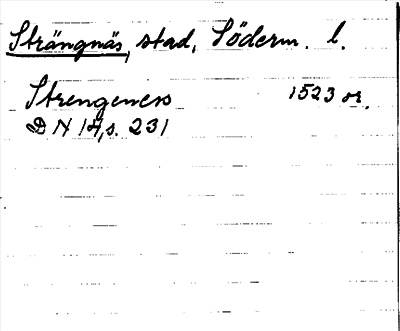 Strängnäs, stad, Söderm. l.
Strengeness 1523 or.
DN 14, s. 231